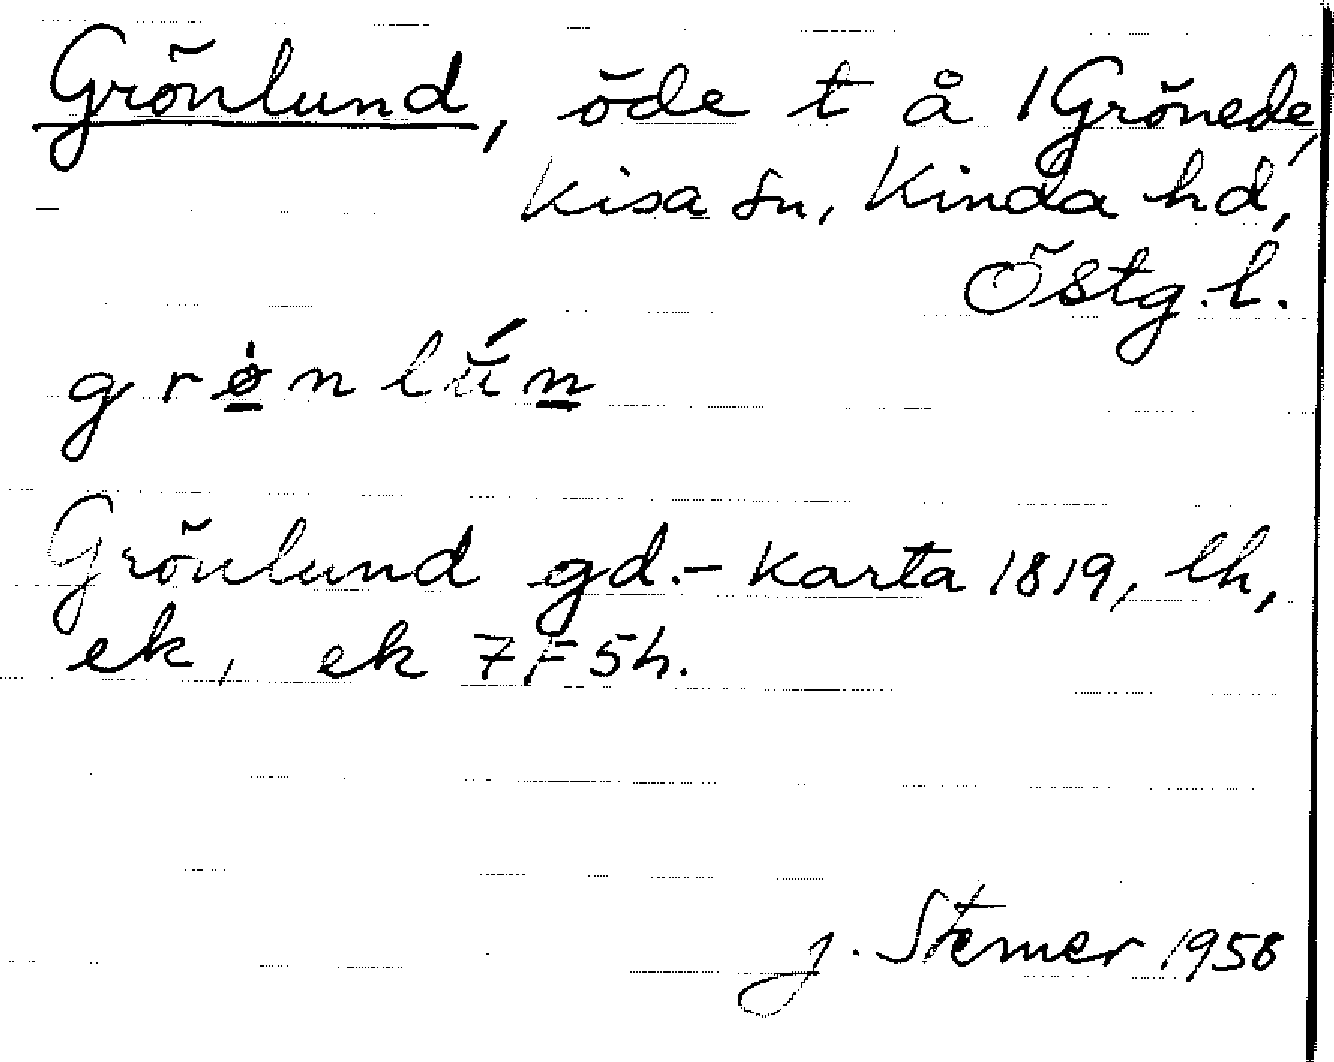 Grönlund, öde t å 1 Grönede,
Kisa sn, Kinda hd,
Östg. l.
grø̱nlúṉ
Grönlund gd. - Karta 1819, lh,
ek, ek 7F5h.
J. Stemer 1958